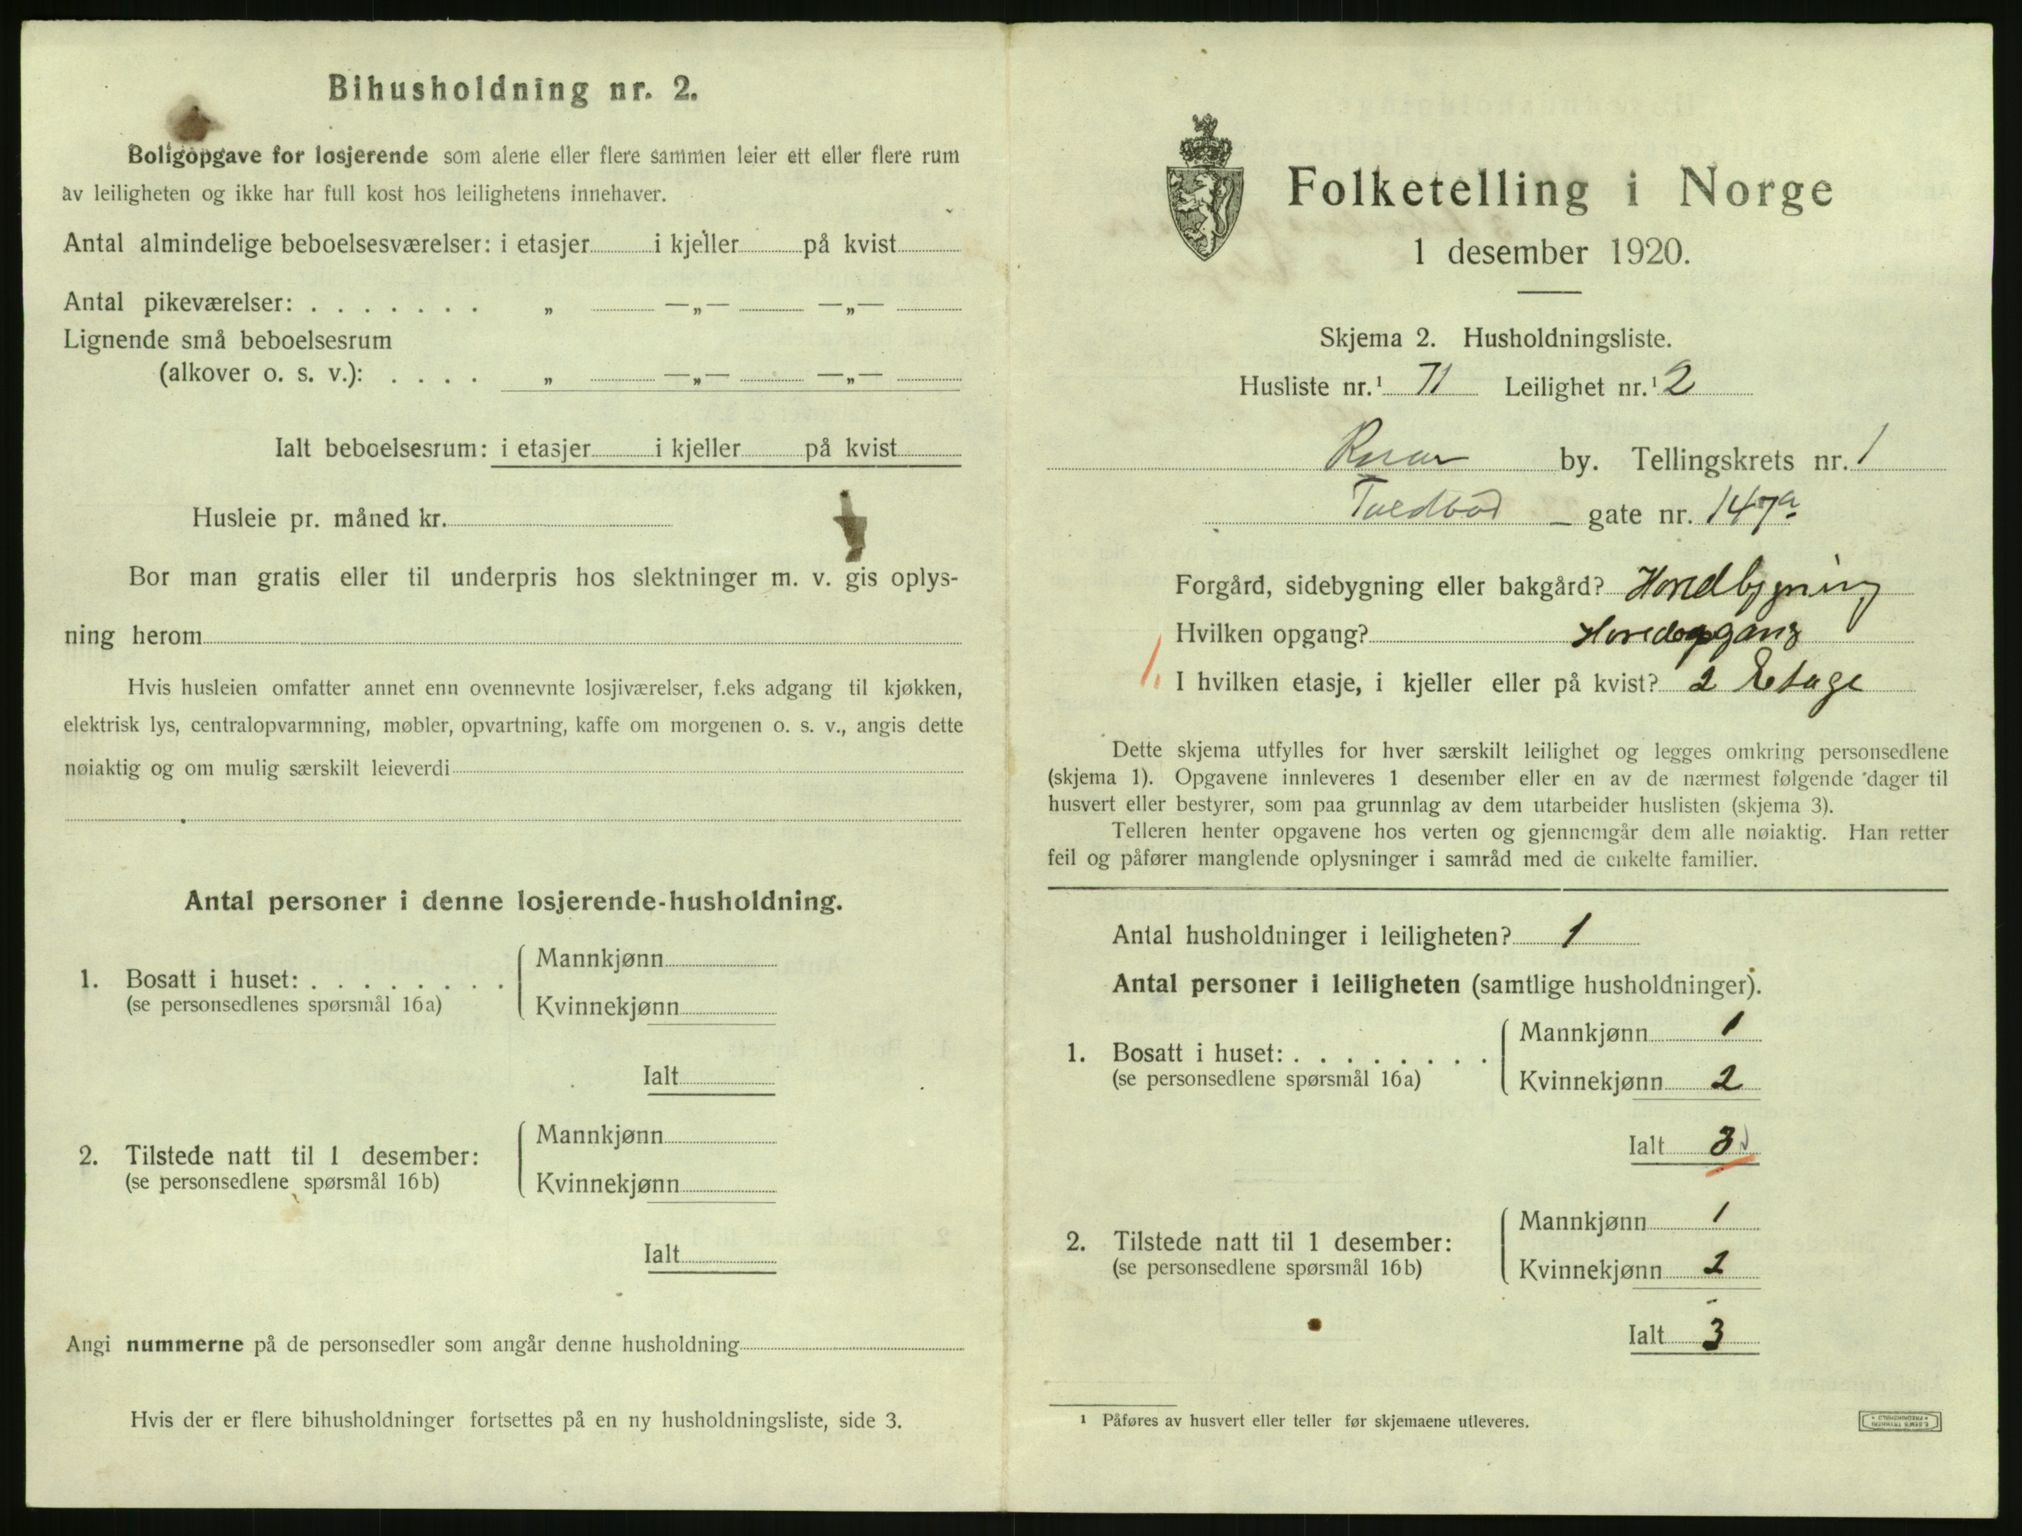 Bihusholdning nr. 2.
Boligopgave for losjerende som alene eller flere sammen leier ett eller flere rum
av leiligheten og ikke har full kost hos leilighetens innehaver.
Antal almindelige beboelsesværelser: i etasjer i kjeller på kvist
Antal pikeværelser: . . . . . . . „ —„— —„—
Lignende små beboelsesrum
(alkover o. s. v.): . . . . „ —„— —„—
Ialt beboelsesrum: i etasjer i kjeller på kvist
Husleie pr. måned kr.
Bor man gratis eller til underpris hos slektninger m. v. gis oplys-
ning herom
Hvis husleien omfatter annet enn ovennevnte losjiværelser, f.eks adgang til kjøkken,
elektrisk lys, centralopvarmning, møbler, opvartning, kaffe om morgenen o. s. v., angis dette
nøiaktig og om mulig særskilt leieverdi
Antal personer i denne losjerende-husholdning.
1. Bosatt i huset: . . . . . . . . Mannkjønn
(se personsedlenes spørsmål 16a) Kvinnekjønn
Ialt
2. Tilstede natt til 1 desember: Mannkjønn
(se personsedlene spørsmål 16b) Kvinnekjønn
Ialt
Angi nummerne på de personsedler som angår denne husholdning
Hvis der er flere bihusholdninger fortsettes på en ny husholdningsliste, side 3.
Folketelling i Norge
1 desember 1920.
Skjema 2. Husholdningsliste.
Husliste nr.¹ 71 Leilighet nr.¹ 2
by. Tellingskrets nr. 1
Toldbod gate nr. 147a
Forgård, sidebygning eller bakgård? Hovedbygning
Hvilken opgang? Hovedopgang
1. I hvilken etasje, i kjeller eller på kvist? 2 Etage
Dette skjema utfylles for hver særskilt leilighet og legges omkring personsedlene
(skjema 1). Opgavene innleveres 1 desember eller en av de nærmest følgende dager til
husvert eller bestyrer, som paa grunnlag av dem utarbeider huslisten (skjema 3).
Telleren henter opgavene hos verten og gjennemgår dem alle nøiaktig. Han retter
feil og påfører manglende oplysninger i samråd med de enkelte familier.
Antal husholdninger i leiligheten? 1
Antal personer i leiligheten (samtlige husholdninger).
1. Bosatt i huset: . . . . . . . . Mannkjønn 1
(se personsedlene spørsmål 16a) Kvinnekjønn 2
Ialt 3
2. Tilstede natt til 1 desember: Mannkjønn 1
(se personsedlene spørsmål 16b) Kvinnekjønn 2
Ialt 3
¹ Påføres av husvert eller teller før skjemaene utleveres.